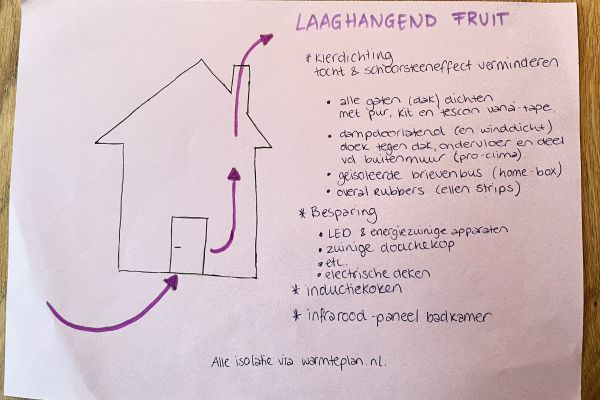 LAAGHANGEND FRUIT
* Kierdichting
tocht & schoorsteeneffect verminderen
• alle gaten (dak) dichten
met pur, kit en tescon vana-tape.
• dampdoorlatend (en winddicht)
doek tegen dak, ondervloer en deel
vd buitenmuur (pro-clima)
• geïsoleerde brievenbus (home-box)
• overal rubbers (ellen strips)
* Besparing
• LED & energiezuinige apparaten
• zuinige douchekop
• etc.
• electrische deken
* inductiekoken
* infrarood-paneel badkamer
Alle isolatie via warmteplan.nl.